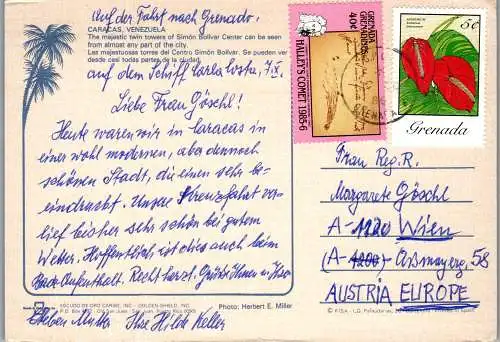 Auf der Fahrt nach Grenada.
CARACAS, VENEZUELA
The majestic twin towers of Simón Bolivar Center can be seen
from almost any part of the city.
Las majestuosas torres del Centro Simón Bolivar. Se pueden ver
desde casi todas partes de la ciudad.
auf dem Schiff Carla Costa, 7.IX.
Liebe Frau Göschl!
Heute waren wir in Caracas in
einer wohl modernen, aber dennoch
schönen Stadt, die einen sehr be-
eindruckt. Unsere Kreuzfahrt ver-
lief bisher sehr schön bei gutem
Wetter. Hoffentlich ist dies auch beim
Bade-Aufenthalt. Recht herzl. Grüße Ihnen u.
Mutter Ihre Hilde Keller
ESCUDO DE ORO CARIBE, INC. - GOLDEN-SHIELD, INC.
Old San Juan - San Juan, Puerto Rico
Photo: Herbert E. Miller
GRENADA
GRENADINES
40¢
HALLEY'S COMET 1985-6
5¢
Grenada
Frau Reg. R.
Margarete Göschl
A-1120 Wien
(A-1200) Aßmayerg. 58
AUSTRIA EUROPE
© FISA - I.G.